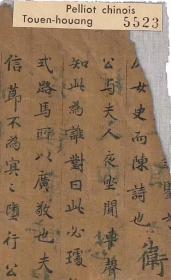 Pelliot chinois
Touen-houang 5523
女史而陳詩也 衛
公与夫人夜坐聞車聲
知此為誰對曰此必璩
式路馬所以廣敬也夫
信節不為冥々墮行公